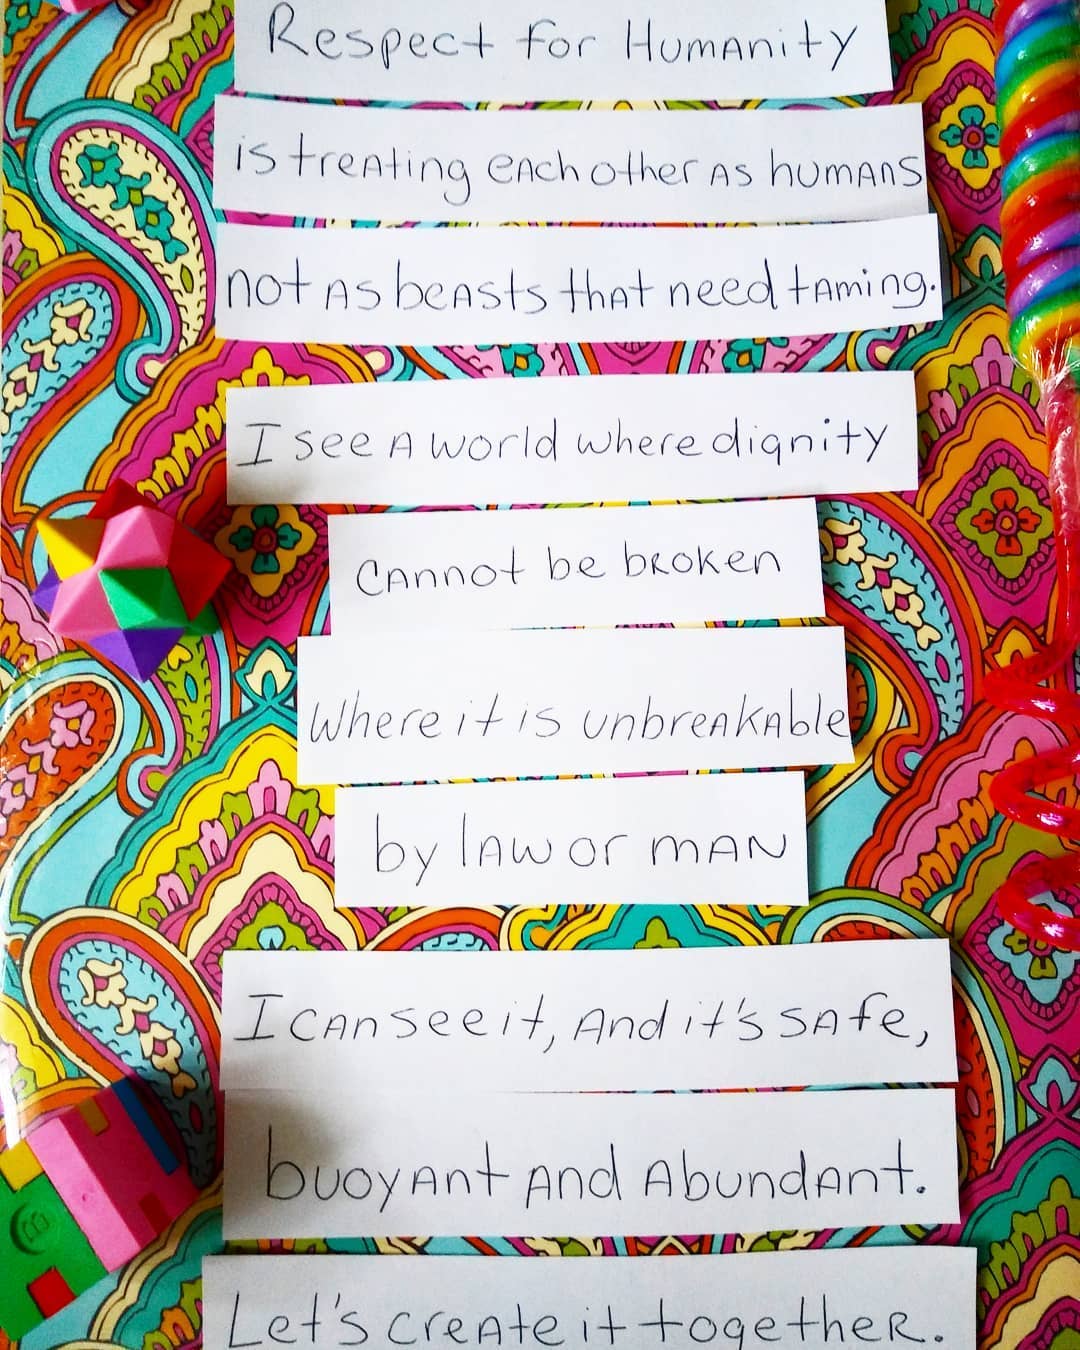 Respect for Humanity
is treating each other as humans
not as beasts that need taming.
I see a world where dignity
cannot be broken
Where it is unbreakable
by law or man
I can see it, and it's safe,
buoyant and abundant.
Let's create it together.